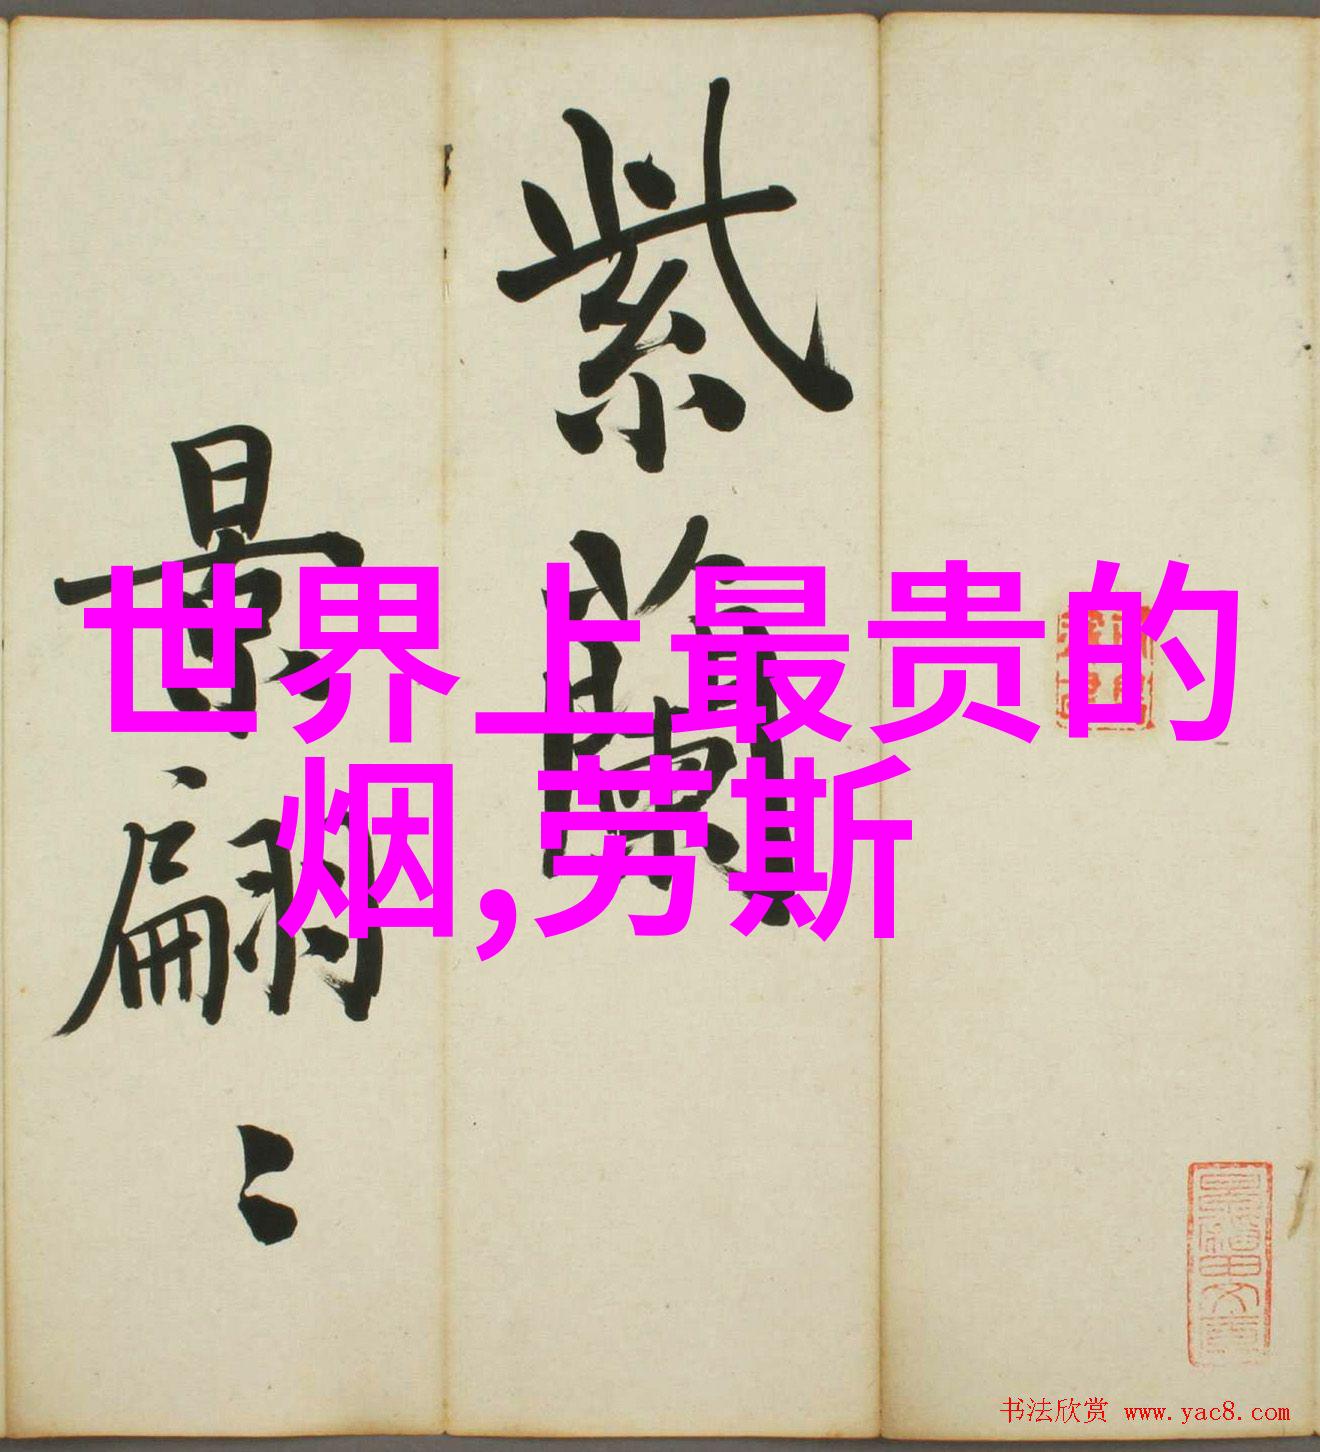 世界上最贵的
烟,劳斯
紫蘭
最翩々
书法欣赏 www.yac8.com